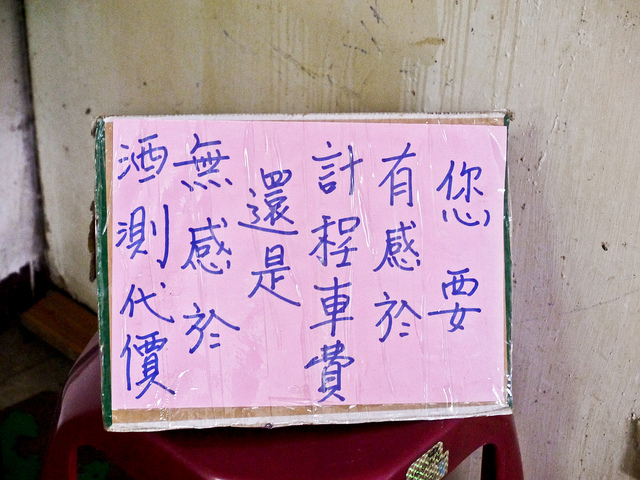 您要
有感於
計程車費
還是
無感於
酒測代價